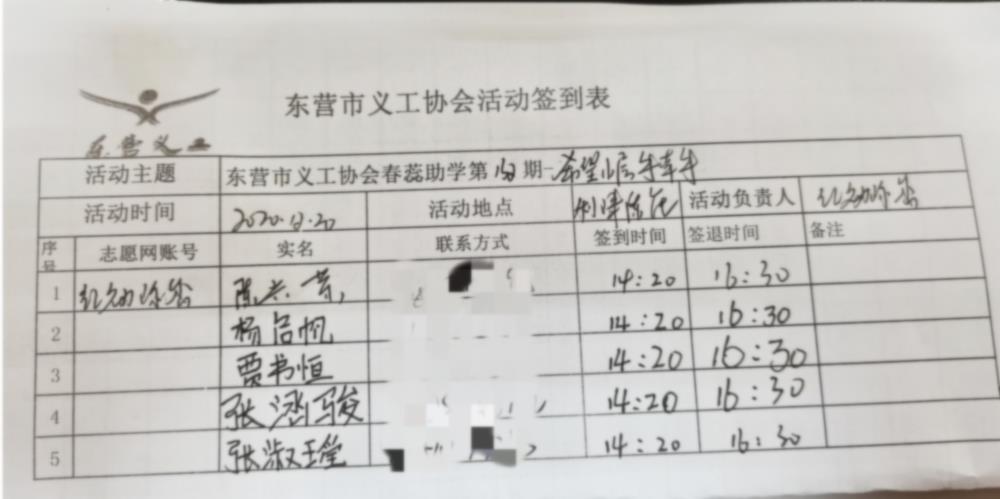 东营市义工协会活动签到表
东营义工
活动主题 东营市义工协会春蕊助学第 期-希望小屋手牵手
活动时间 2020.12.20 活动地点 利津陈庄 活动负责人
序号 志愿网账号 实名 联系方式 签到时间 签退时间 备注
1 陈兰芳 14:20 16:30
2 杨启帆 14:20 16:30
3 贾书恒 14:20 16:30
4 张 骏 14:20 16:30
5 张淑莹 14:20 16:30